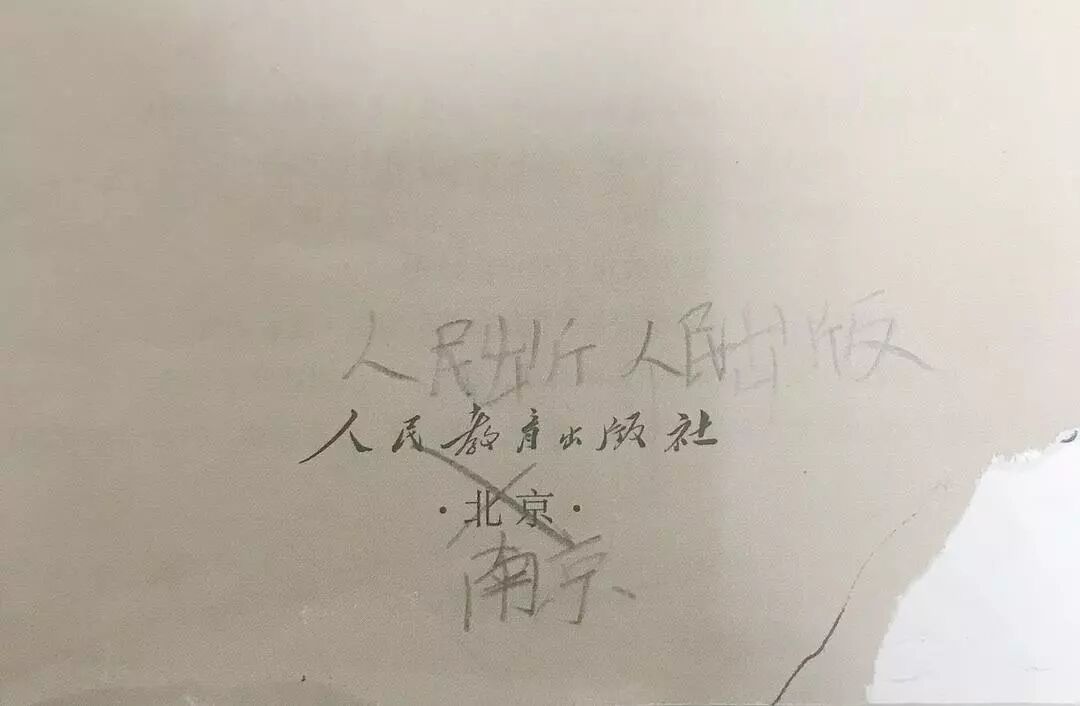 人民出版 人民出版
人民教育出版社
·北京·
南京